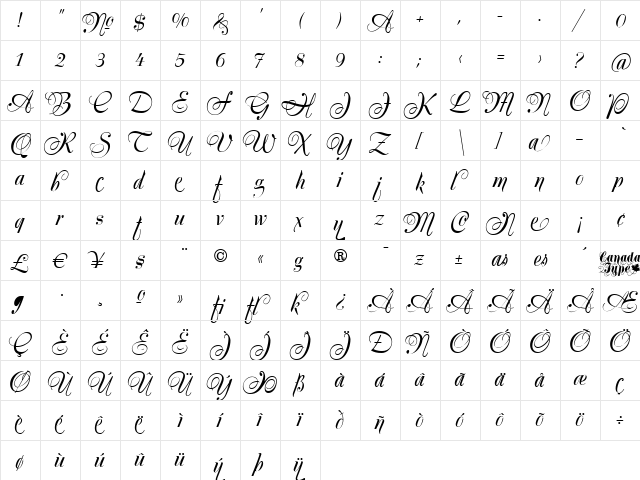 ! " № $ % & ' ( ) A + , - . / 0
1 2 3 4 5 6 7 8 9 : ; ‹ = › ? @
A B C D E F G H I J K L M N O P
Q R S T U V W X Y Z [ \ ] a - `
a b c d e f g h i j k l m n o p
q r s t u v w x y z M C N e ¡ ¢
£ € ¥ $ ¨ © « g ® ¯ z ± as es ´ Canada Type
g · ¸ º » fi fl k ¿ À Á Â Ã Ä Å Æ
Ç È É Ê Ë Ì Í Î Ï Ð Ñ Ò Ó Ô Õ Ö
Ø Ù Ú Û Ü Ý Þ ß à á â ã ä å æ ç
è é ê ë ì í î ï ð ñ ò ó ô õ ö ÷
ø ù ú û ü ý þ ÿ